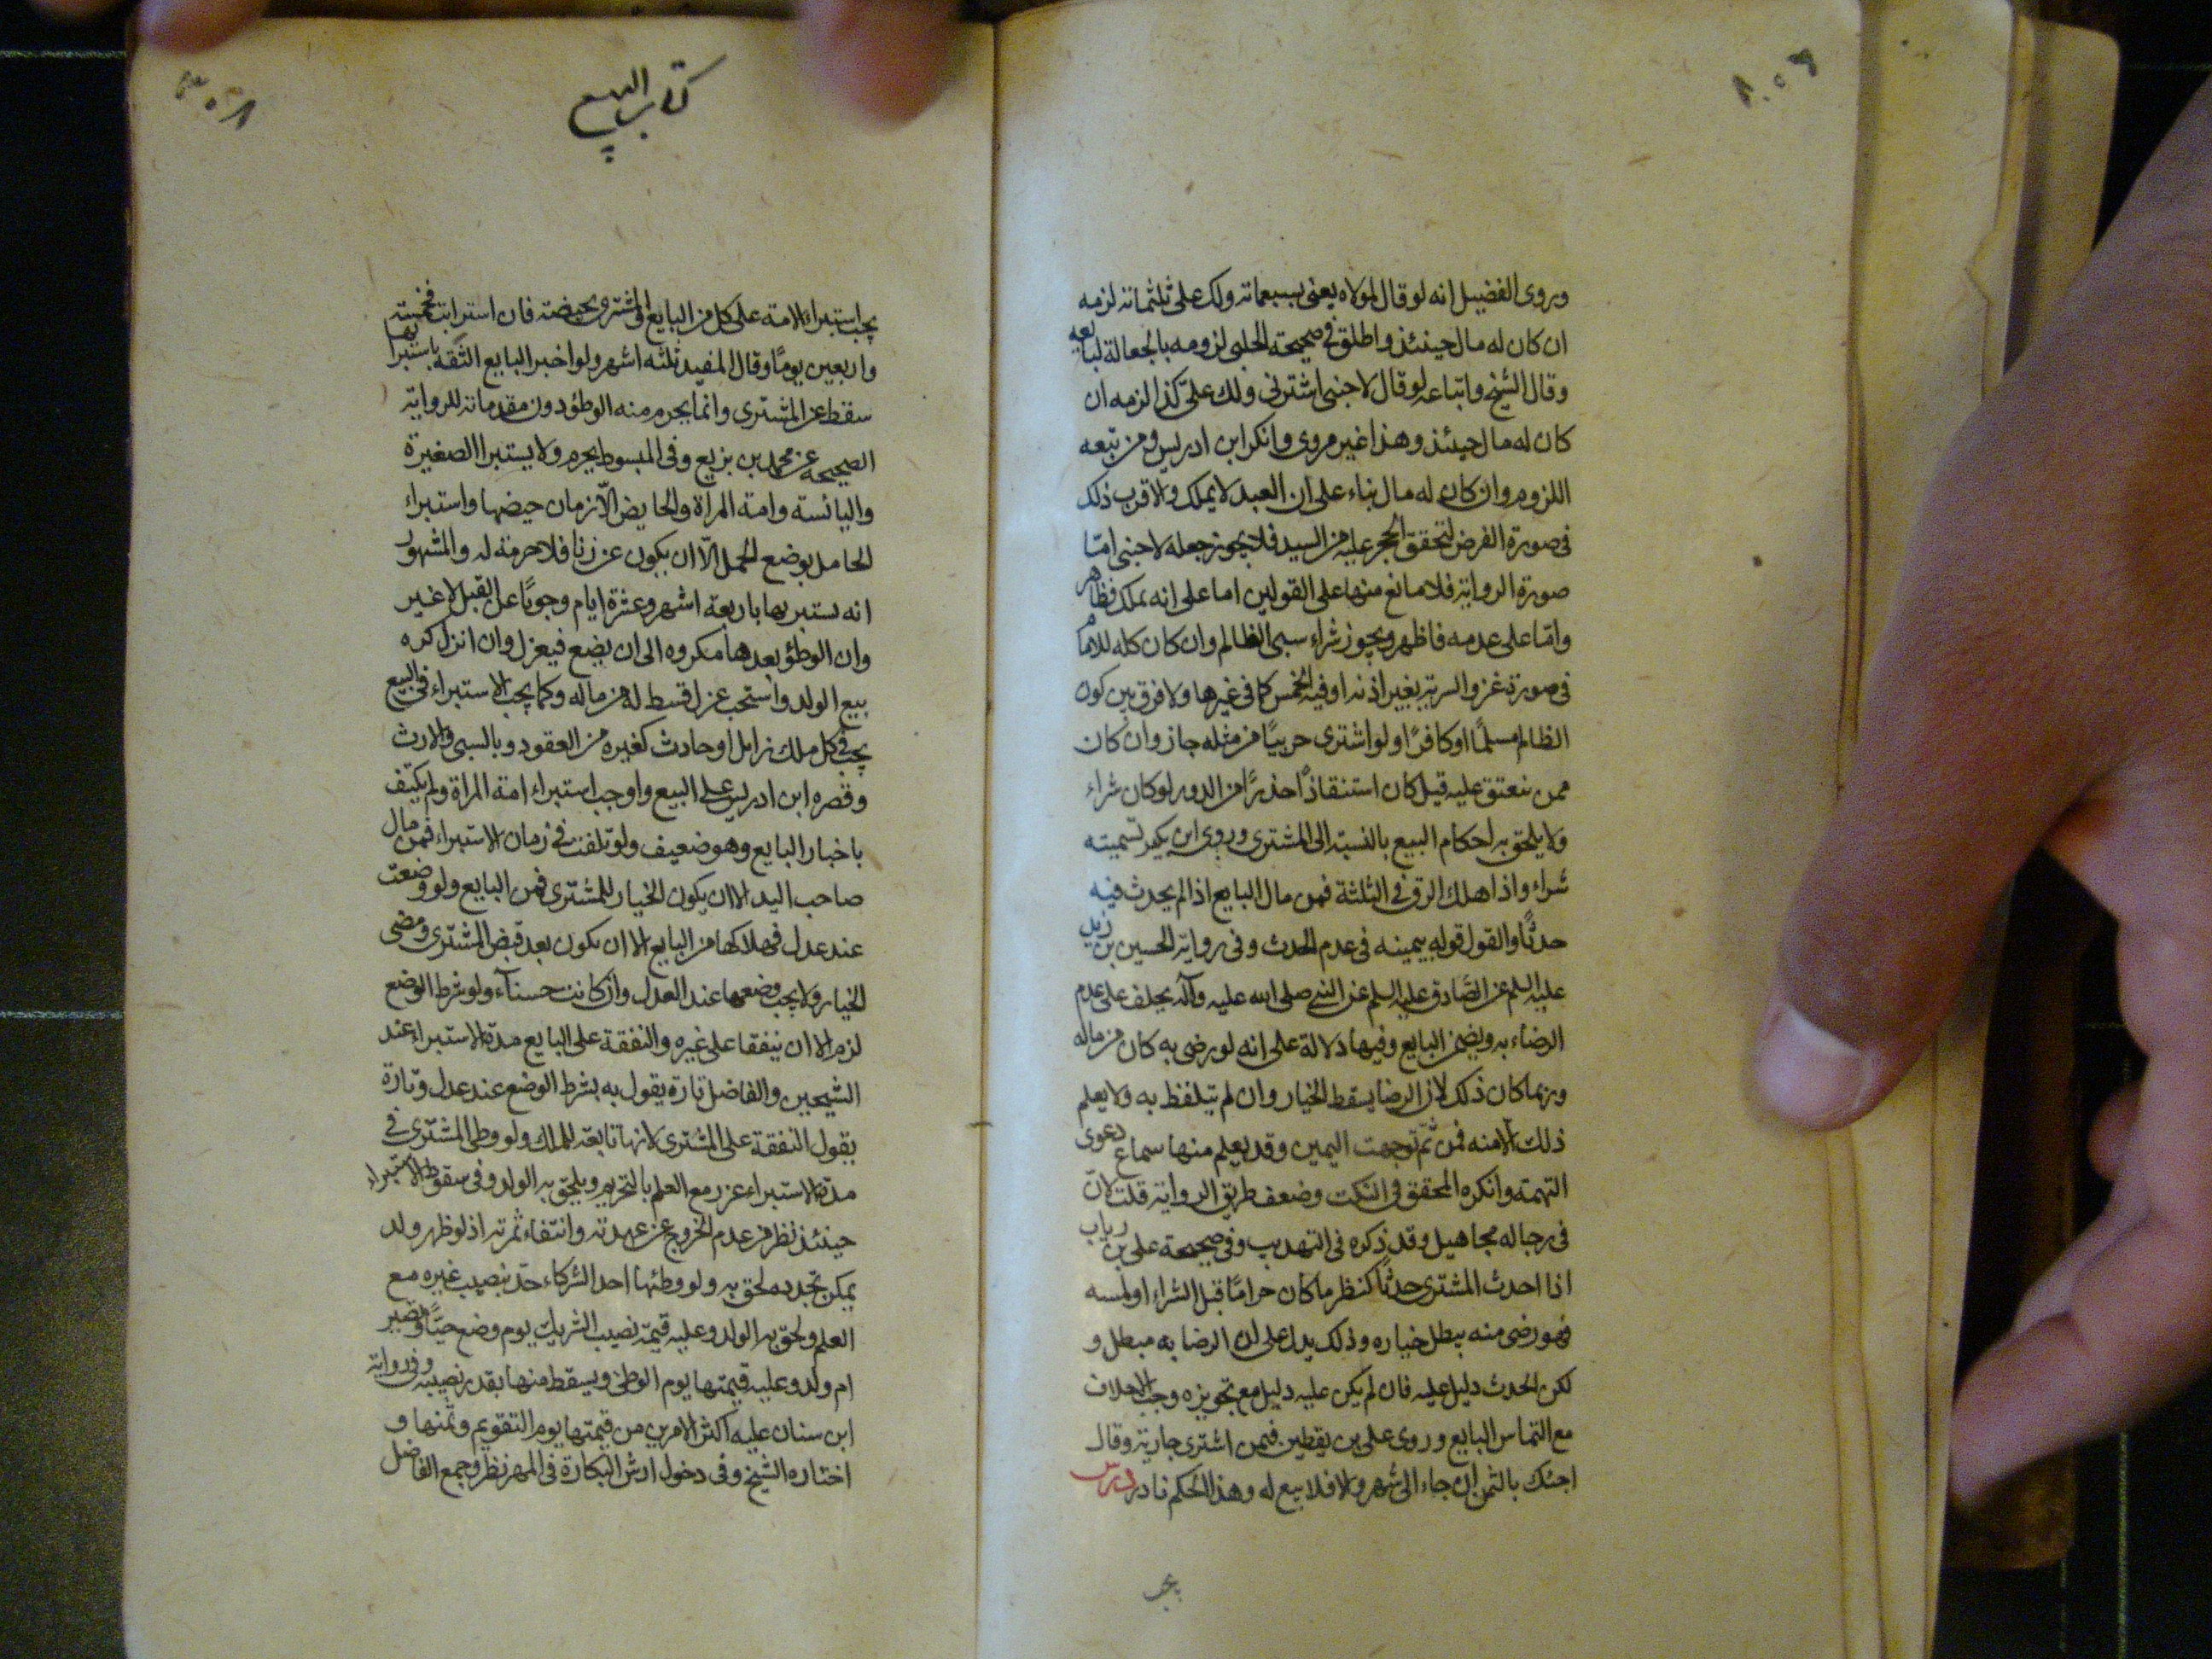 وروى الفضيل انه لو قال لمولاه بعنى بسبعمائة ولك على ثلثمائة لزمه
ان كان له مال حينئذ واطلق فى صحيحة الحلبى لزومه بالجعالة لبايعه
وقال الشيخ واتباعه لو قال لاجنبى اشترنى ولك علىّ كذا لزمه ان
كان له مال حينئذ وهذا غير مروى وانكر ابن ادريس ومن تبعه
اللزوم وان كان له مال بناء على ان العبد لا يملك والاقرب ذلك
فى صورة الفرض لتحقق الحجر عليه من السيد فلا يجوز جعله لاجنبى امّا
صورة الرواية فلا مانع منها على القولين اما على انه يملك فظاهر
وامّا على عدمه فاظهر ويجوز شراء سبى الظالم وان كان كله للامام
فى صورة غزو السرية بغير اذنه او فيه الخمس كما فى غيرها ولا فرق بين كون
الظالم مسلمًا او كافرًا ولو اشترى حربيًا من مثله جاز وان كان
ممن ينعتق عليه قيل كان استنقاذًا حذرًا من الدور لو كان شراء
ولا يلحق به احكام البيع بالنسبة الى المشترى وروى ابن بكير تسميته
شراء واذا هلك الرق فى الثلثة فمن مال البايع اذا لم يحدث فيه
حدثًا والقول قوله بيمينه فى عدم الحدث وفى رواية الحسين بن زيد
عليه السلم عن الصّادق عليه السلم عن النبى صلى الله عليه وآله يحلف على عدم
الرضاء به ويضمن البايع وفيها دلالة على انه لو رضى به كان من ماله
وربما كان ذلك لان الرضا يسقط الخيار وان لم يتلفظ به ولا يعلم
ذلك الا منه فمن ثمّ توجهت اليمين وقد يعلم منها سماع دعوى
التهمة وانكره المحقق فى النكت وضعف طريق الرواية قلت لانّ
فى رجاله مجاهيل وقد ذكره فى التهذيب وفى صحيحة على بن رياب
اذا احدث المشترى حدثًا كنظر ما كان حرامًا قبل الشراء او لمسه
فهو رضى منه يبطل خياره وذلك يدل على ان الرضا به مبطل و
لكن الحدث دليل عليه فان لم يكن عليه دليل مع تجويزه وجب الاحلاف
مع التماس البايع وروى على بن يقطين فيمن اشترى جارية وقال
اجئك بالثمن ان جاء الى شهر والا فلا بيع له وهذا الحكم نادر درس
يجب
٣٥٨
كتاب البيع
يجب استبراء الامة على كل من البايع والمشترى بحيضة فان استرابت فخمسة
واربعين يومًا وقال المفيد ثلثه اشهر ولو اخبر البايع الثّقه باستبرائها
سقط عن المشترى وانما يحرم منه الوطؤ دون مقدماته للرواية
الصحيحة عن محمد بن بزيع وفى المبسوط يحرم ولا يستبرا الصغيرة
واليائسة وامة المراة والحايض الّا زمان حيضها واستبراء
الحامل بوضع الحمل الّا ان يكون عن زنا فلا حرمة له والمشهور
انه يستبريها باربعة اشهر وعشرة ايام وجوبًا عن القبل لا غير
وان الوطؤ بعدها مكروه الى ان يضع فيعزل وان انزل كره
بيع الولد واستحب عزل قسط له من ماله وكما يجب الاستبراء فى البيع
يجب فى كل ملك زايل او حادث كغيره من العقود وبالسبى والارث
وقصره ابن ادريس على البيع واوجب استبراء امة المراة ولم يكتف
باخبار البايع وهو ضعيف ولو تلفت فى زمان الاستبراء فمن مال
صاحب اليد الا ان يكون الخيار للمشترى فمن البايع ولو وضعت
عند عدل فهلاكها من البايع الا ان يكون بعد قبض المشترى ومضى
الخيار ولا يجب وضعها عند العدل وان كانت حسنآء ولو شرط الوضع
لزم الا ان يتفقا على غيره والنفقة على البايع مدة الاستبراء عند
الشيخين والفاضل تارة يقول به بشرط الوضع عند عدل وتارة
يقول النفقة على المشترى لانها تابعة للملك ولو وطى المشترى فى
مدة الاستبراء عزر مع العلم بالتحريم ويلحق به الولد وفى سقوط الاستبراء
حينئذ نظر من عدم الخروج عن عهدته وانتفاء ثمرته اذ لو ظهر ولد
يمكن تجدده لحق به ولو وطئها احد الشركاء حدّ بنصيب غيره مع
العلم ولحق به الولد وعليه قيمة نصيب الشريك يوم وضع حيًّا وتصير
ام ولد وعليه قيمتها يوم الوطئ ويسقط منها بقدر نصيبه وفى رواية
ابن سنان عليه اكثر الامرين من قيمتها يوم التقويم وثمنها و
اختاره الشيخ وفى دخول ارش البكارة فى المهر نظر وجمع الفاضل